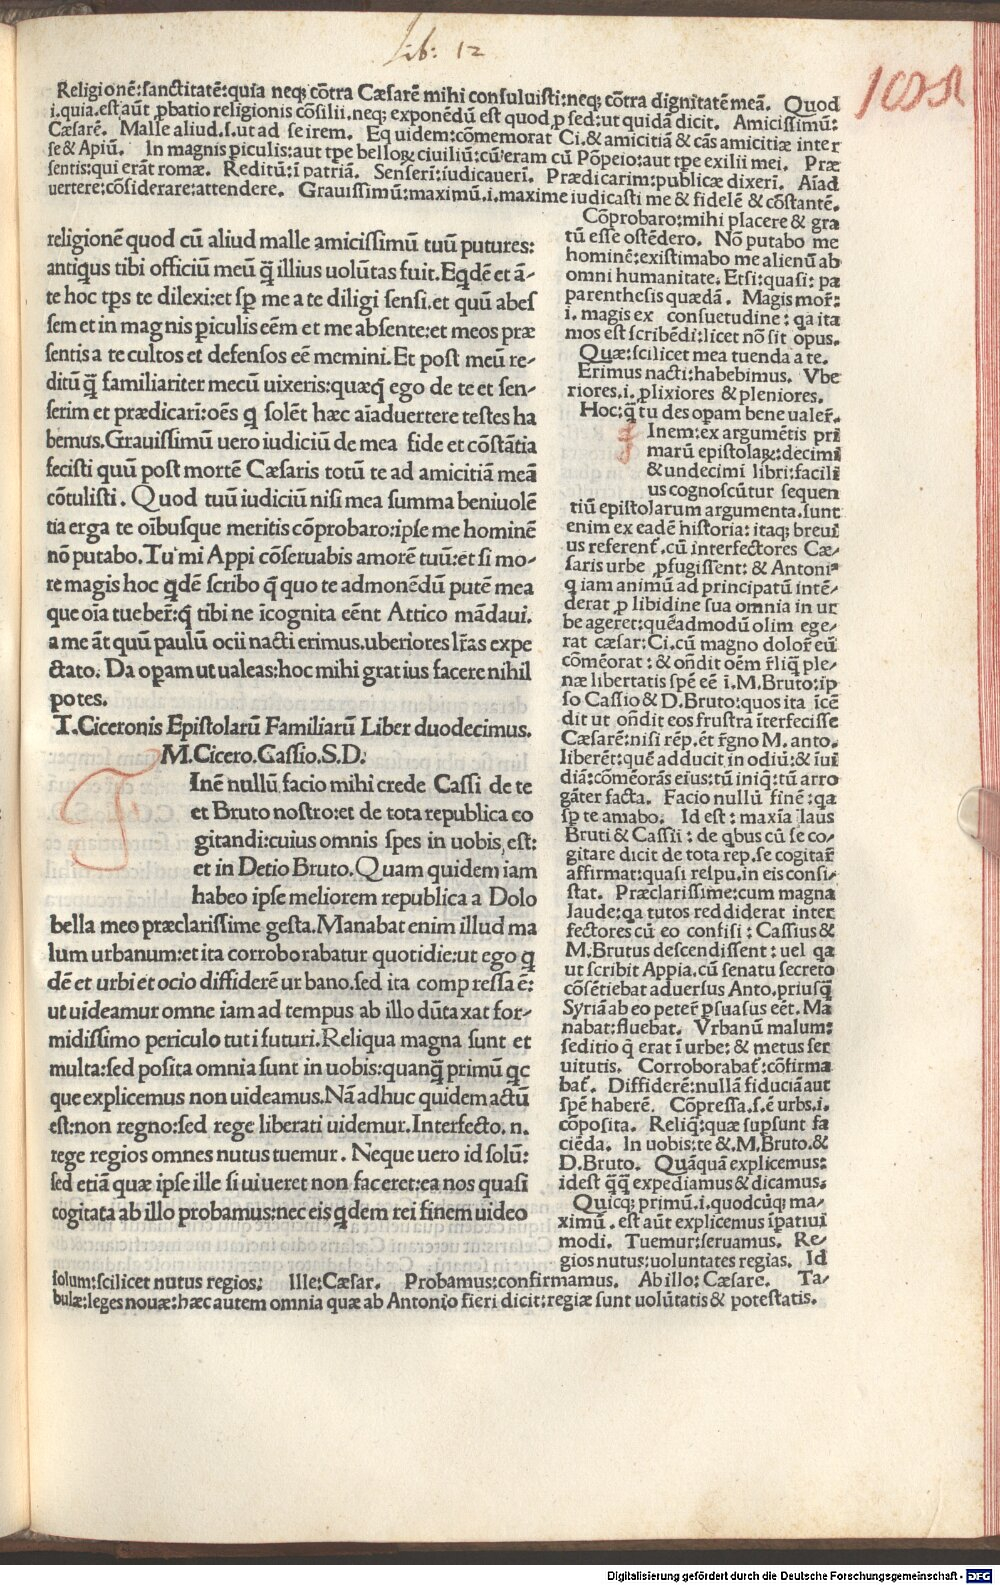 Lib: 12
Religionē:sanctitatē:quia neq; cōtra Cæsarē mihi consuluisti:neq; cōtra dignitatē meā. Quod
i.quia.est aūt ꝓbatio religionis cōsilii.neq; exponēdū est quod,ꝓ sed:ut quidā dicit. Amicissimū:
Cæsarē. Malle aliud.s.ut ad se irem. Equidem:cōmemorat Ci.& amicitiā & cās amicitiæ inter
se & Apiū. In magnis ꝑiculis:aut tꝑe belloꝝ ciuiliū:cū eram cū Pōpeio:aut tꝑe exilii mei. Præ
sentis:qui erāt romæ. Reditū:ī patriā. Senserī:iudicauerī. Prædicarim:publicæ dixerī. Aīad
uertere:cōsiderare:attendere. Grauissimū:maximū.i.maxime iudicasti me & fidelē & cōstantē.
religionē quod cū aliud malle amicissimū tuū putures:
antiqus tibi officiū meū q̄ illius uolūtas fuit.Eqdē et ā-
te hoc tꝑs te dilexi:et sꝑ me a te diligi sensi.et quū abes
sem et in magnis ꝑiculis eēm et me absente:et meos præ
sentis a te cultos et defensos eē memini.Et post meū re-
ditū q̄ familiariter mecū uixeris:quæq̄ ego de te et sen-
serim et prædicarī:oēs q solēt hæc aīaduertere testes ha
bemus.Grauissimū uero iudiciū de mea fide et cōstātia
fecisti quū post mortē Cæsaris totū te ad amicitiā meā
cōtulisti. Quod tuū iudiciū nisi mea summa beniuolē
tia erga te oībusque meritis cōprobaro:ipse me hominē
nō putabo.Tu mi Appi cōseruabis amorē tuū:et si mo-
re magis hoc qdē scribo q̄ quo te admonēdū putē mea
que oīa tueber̄:q̄ tibi ne īcognita eēnt Attico mādaui.
a me āt quū paulū ocii nacti erimus.uberiores lr̄as expe
ctato. Da opam ut ualeas:hoc mihi gratius facere nihil
potes.
T.Ciceronis Epistolarū Familiarū Liber duodecimus.
M.Cicero.Cassio.S.D:
T Inē nullū facio mihi crede Cassi de te
et Bruto nostro:et de tota republica co
gitandi:cuius omnis spes in uobis est:
et in Detio Bruto.Quam quidem iam
habeo ipse meliorem republica a Dolo
bella meo præclarissime gesta.Manabat enim illud ma
lum urbanum:et ita corroborabatur quotidie:ut ego q
dē et urbi et ocio diffiderē urbano.sed ita compressa ē:
ut uideamur omne iam ad tempus ab illo dūtaxat for-
midissimo periculo tuti futuri.Reliqua magna sunt et
multa:sed posita omnia sunt in uobis:quanq̄ primū qc
que explicemus non uideamus.Nā adhuc quidem actū
est:non regno:sed rege liberati uidemur.Interfecto.n.
rege regios omnes nutus tuemur. Neque uero id solū:
sed etiā quæ ipse ille si uiueret non faceret:ea nos quasi
cogitata ab illo probamus:nec eis qdem rei finem uideo
Cōprobaro:mihi placere & gra
tū esse ostēdero. Nō putabo me
hominē:existimabo me alienū ab
omni humanitate. Etsi:quasi: pa
parenthesis quædā. Magis mor̄:
i. magis ex consuetudine: qa ita
mos est scribēdi:licet nō sit opus.
Quæ:scilicet mea tuenda a te.
Erimus nacti:habebimus. Vbe
riores.i.ꝓlixiores & pleniores.
Hoc:q̄ tu des opam bene ualer̄.
f Inem:ex argumētis pri
marū epistolaꝝ:decimi
& undecimi libri:facili
us cognoscūtur sequen
tiū epistolarum argumenta.sunt
enim ex eadē historia: itaq; breui
us referent̄.cū interfectores Cæ-
saris urbe ꝓfugissent: & Antoniꝰ
q iam animū ad principatū intē-
derat ꝓ libidine sua omnia in ur
be ageret:quēadmodū olim ege-
rat cæsar:Ci.cū magno dolor̄ eū
cōmēorat: & oñdit oēm r̄liq̄ ple-
næ libertatis spē eē ī.M.Bruto:ip
so Cassio & D.Bruto:quos ita īcē
dit ut oñdit eos frustra īterfecisse
Cæsarē:nisi rēp.ēt r̄gno M. anto.
liberēt:quē adducit in odiū:& iui
diā:cōmēorās eius:tū iniq̄:tū arro
gāter facta. Facio nullū finē:qa
sꝑ te amabo. Id est: maxīa laus
Bruti & Cassii: de qbus cū se co-
gitare dicit de tota rep.se cogitar̄
affirmat:quasi resp̄u.in eis consi-
stat. Præclarissime:cum magna
laude:qa tutos reddiderat inter
fectores cū eo confisi: Cassius &
M.Brutus descendissent: uel qa
ut scribit Appia.cū senatu secreto
cōsētiebat aduersus Anto.priusq̄
Syriā ab eo peter̄ ꝑsuasus eēt. Ma
nabat:fluebat. Vrbanū malum:
seditio q̄ erat ī urbe: & metus ser
uitutis. Corroborabat̄:cōfirma
bat̄. Diffiderē:nullā fiduciā aut
spē haberē. Cōpressa.s.ē urbs.i.
cōposita. Reliq̄:quæ supsunt fa
ciēda. In uobis:te &.M.Bruto.&
D.Bruto. Quāquā explicemus:
idest q̄q̄ expediamus & dicamus.
Quicq; primū.i.quodcūq; ma-
ximū. est aūt explicemus īpatiui
modi. Tuemur:seruamus. Re-
gios nutus:uoluntates regias. Id
solum:scilicet nutus regios: Ille:Cæsar. Probamus:confirmamus. Ab illo: Cæsare. Ta-
bulæ:leges nouæ:hæc autem omnia quæ ab Antonio fieri dicit:regiæ sunt uolūtatis & potestatis.
Digitalisierung gefördert durch die Deutsche Forschungsgemeinschaft - DFG